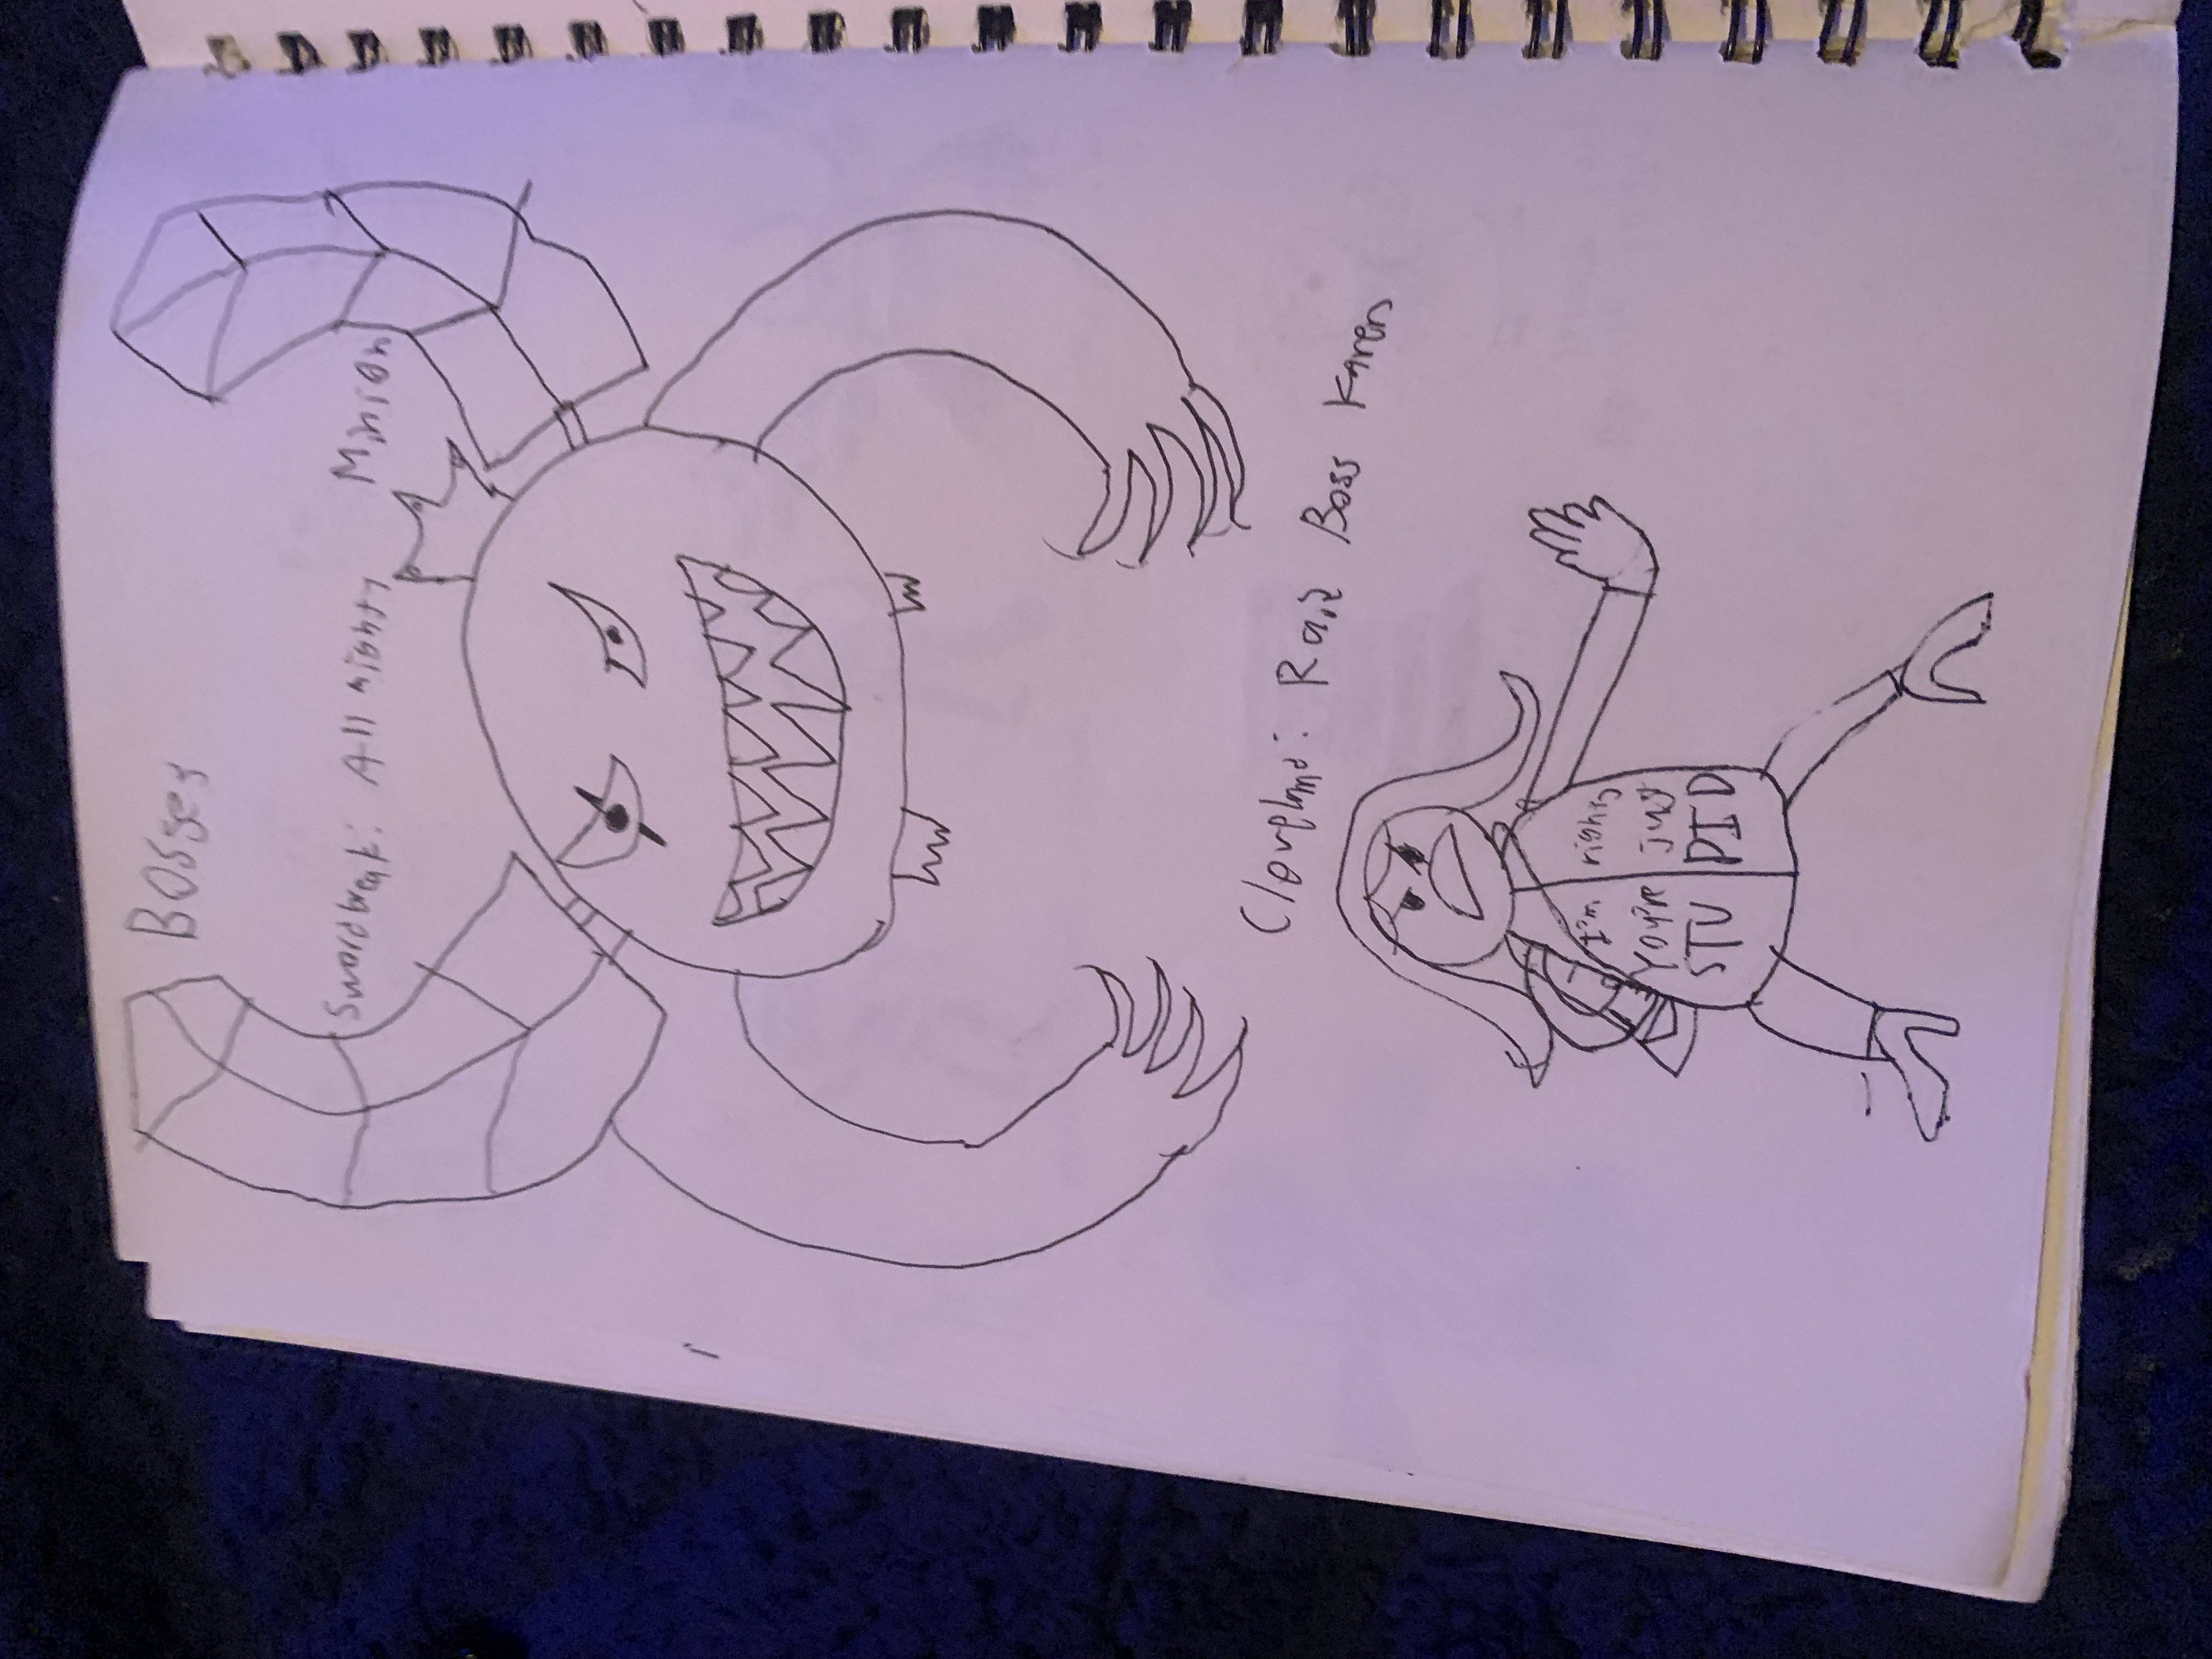 Bosses
Swordbreak: All mighty Minion
Cleveland: Raid Boss Karen
I'm right
You're just
STUPID